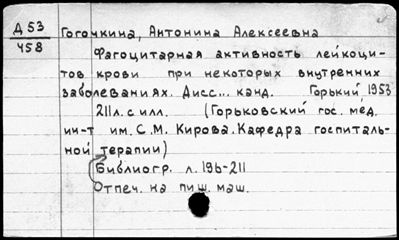 Д 53
458
Гогочкина, Антонина Алексеевна
Фагоцитарная активность лейкоци-
тов крови при некоторых внутренних
заболеваниях. Дисс... канд. Горький 1953
211 л. с илл. (Горьковский гос. мед.
ин-т им. С.М. Кирова. Кафедра госпиталь-
ной терапии)
Библиогр. л. 196-211
Отпеч. на пиш. маш.